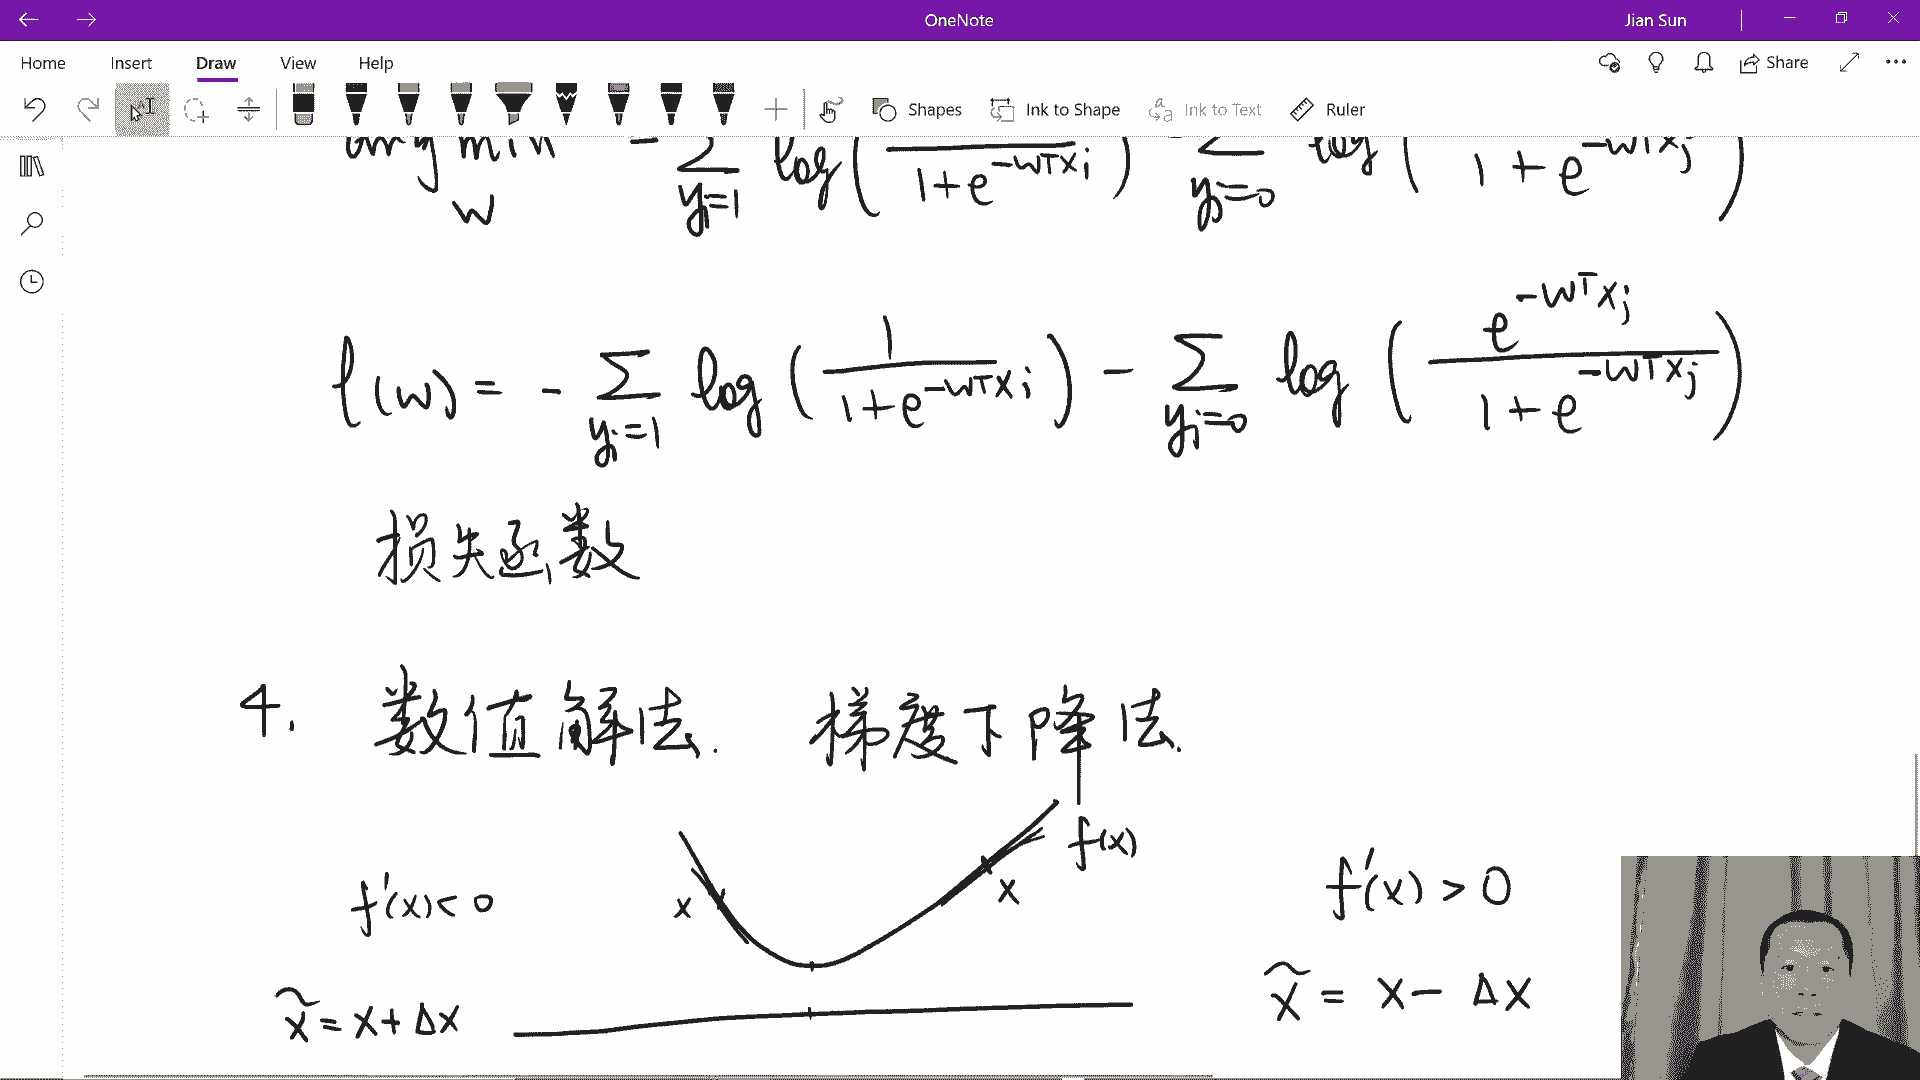 OneNote
Jian Sun
Home Insert Draw View Help
Share
Shapes Ink to Shape Ink to Text Ruler
arg min - Σ log( 1+e^{-wᵀxᵢ} ) - Σ log( 1+e^{-wᵀxⱼ} )
w yᵢ=1 yⱼ=0
l(w) = - Σ_{yᵢ=1} log( 1 / (1+e^{-wᵀxᵢ}) ) - Σ_{yⱼ=0} log( e^{-wᵀxⱼ} / (1+e^{-wᵀxⱼ}) )
损失函数
4. 数值解法. 梯度下降法.
f(x)
f'(x)<0 x x f'(x) > 0
x̃ = x+Δx x̃ = x-Δx